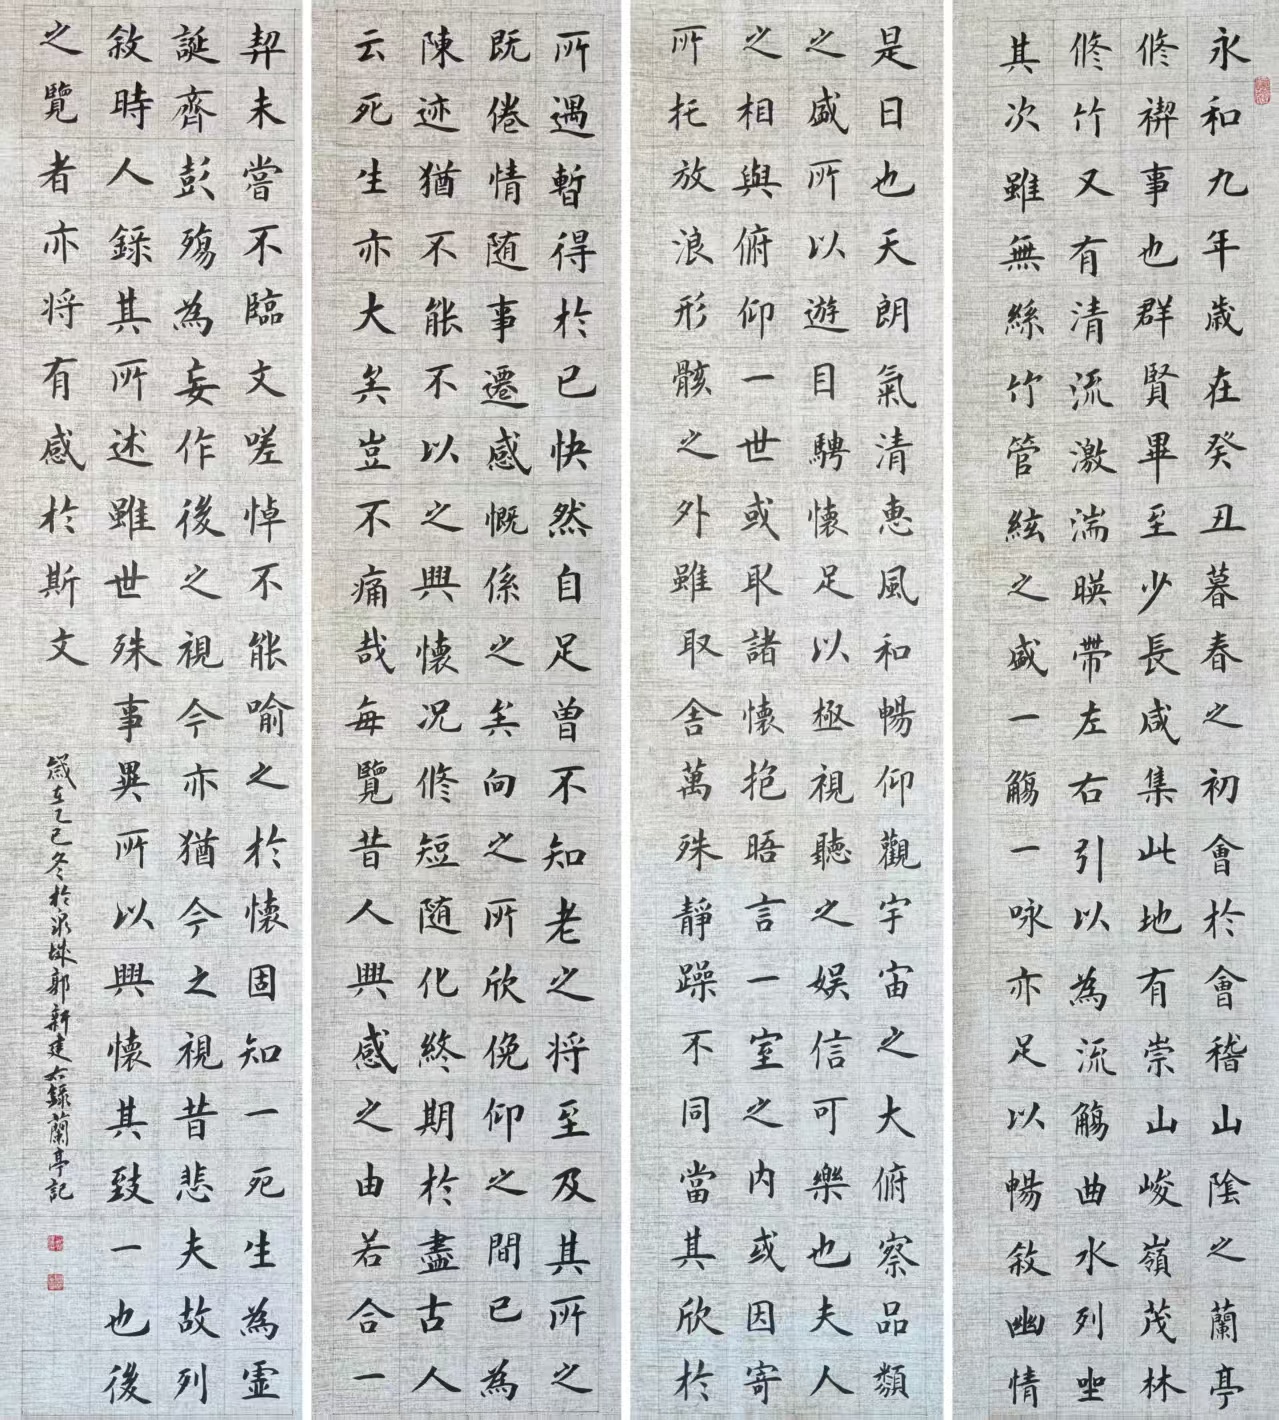 永和九年歲在癸丑暮春之初會於會稽山陰之蘭亭
修禊事也群賢畢至少長咸集此地有崇山峻嶺茂林
修竹又有清流激湍暎帶左右引以為流觴曲水列坐
其次雖無絲竹管絃之盛一觴一咏亦足以暢敘幽情
是日也天朗氣清惠風和暢仰觀宇宙之大俯察品類
之盛所以遊目騁懷足以極視聽之娛信可樂也夫人
之相與俯仰一世或取諸懷抱晤言一室之内或因寄
所托放浪形骸之外雖取舍萬殊靜躁不同當其欣於
所遇暫得於已快然自足曾不知老之将至及其所之
既倦情随事遷感慨係之矣向之所欣俛仰之間已為
陳迹猶不能不以之興懷况修短随化終期於盡古人
云死生亦大矣豈不痛哉每覽昔人興感之由若合一
契未嘗不臨文嗟悼不能喻之於懷固知一死生為虛
誕齊彭殤為妄作後之視今亦猶今之視昔悲夫故列
敘時人錄其所述雖世殊事異所以興懷其致一也後
之覽者亦将有感於斯文
歲在乙巳冬於泉城郭新建右錄蘭亭記